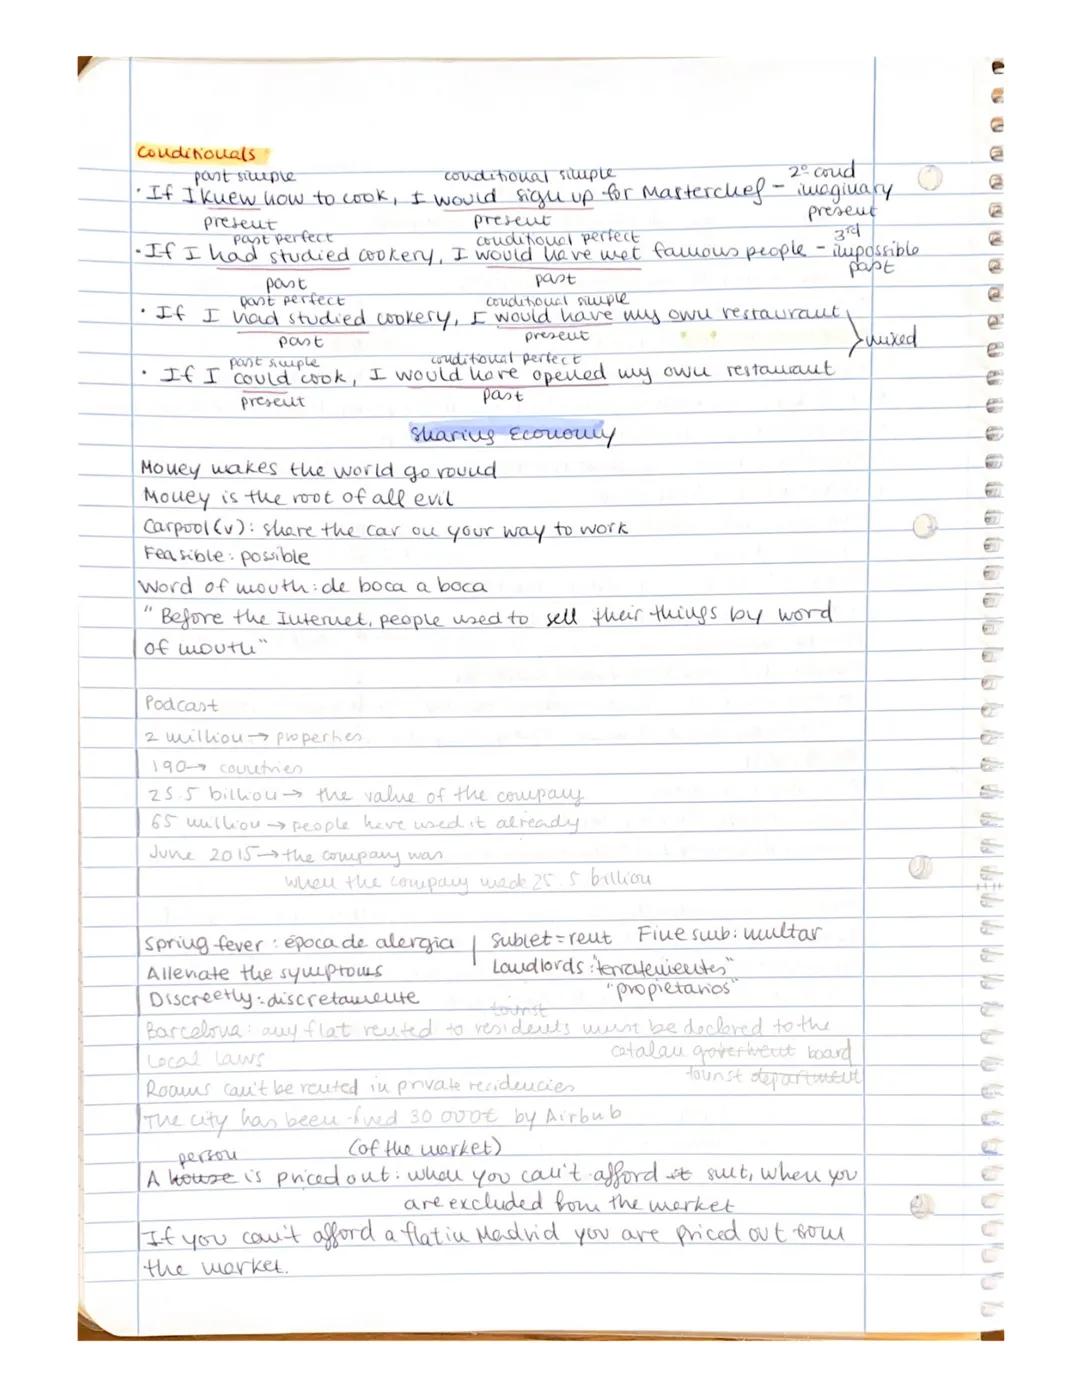 Conditionals
past simple conditional simple 2º cond
· If I knew how to cook, I would sign up for Masterchef - imaginary
present present present
past perfect conditional perfect 3rd
· If I had studied cookery, I would have met famous people - impossible
past past past
past perfect conditional simple
· If I had studied cookery, I would have my own restaurant
past present mixed
past simple conditional perfect
· If I could cook, I would have opened my own restaurant
present past
Sharing Economy
Money makes the world go round
Money is the root of all evil
Carpool (v): share the car on your way to work
Feasible: possible
Word of mouth: de boca a boca
"Before the Internet, people used to sell their things by word
of mouth"
Podcast
2 million → properties
190 → countries
25.5 billion → the value of the company
65 million → people have used it already
June 2015 → the company was
when the company made 25.5 billion
Spring fever: época de alergia | Sublet = rent Fine smb: multar
Allenate the symptoms Landlords: "terratenientes"
Discreetly: discretamente "propietarios"
tourist
Barcelona: any flat rented to residents must be declared to the
Local laws catalan goverment board
tourist department
Rooms can't be rented in private recidencies
The city has been fined 30 000€ by Airbnb
person (of the market)
A house is priced out: when you can't afford it smt, when you
are excluded from the market
If you can't afford a flat in Madrid you are priced out from
the market.